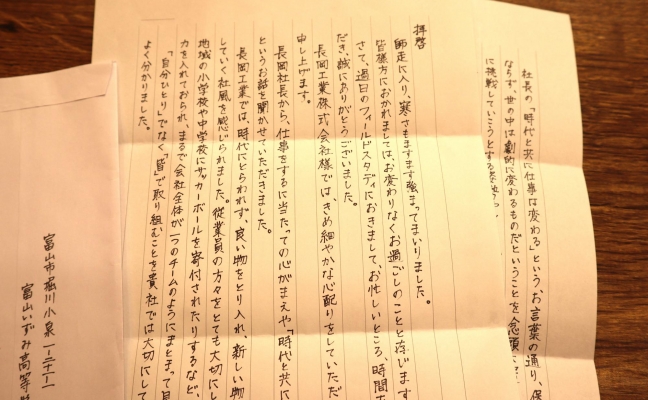 拝啓
師走に入り、寒さもますます強まってまいりました。
皆様方におかれましては、お変わりなくお過ごしのことと存じます
さて、過日のフィールドスタディにおきまして、お忙しいところ、時間を
だき、誠にありがとうございました。
長岡工業株式会社様では、きめ細やかな心配りをしていただ
申し上げます。
長岡社長から、仕事をするに当たっての心がまえや「時代と共に
というお話を聞かせていただきました。
長岡工業では、時代にとらわれず、良い物をとり入れ、新しい物
していく社風を感じられました。従業員の方々をとても大切にし
地域の小学校や中学校にサッカーボールを寄付されたりするなど、
力を入れておられ、まるで会社全体が一つのチームのようにまとまって目
「自分ひとり」でなく「皆で取り組むことを貴社では大切にして
よく分かりました。
社長の「時代と共に仕事は変わる」という、お言葉の通り、保
ならず、世の中は劇的に変わるものだということを念頭に
に挑戦していこうとする
富山市堀川小泉一-二十一
富山いずみ高等